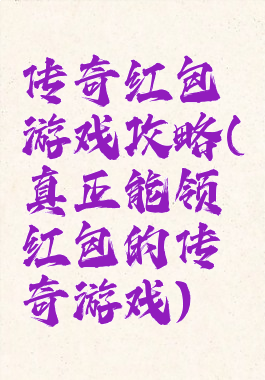 传奇红包
游戏攻略(
真正能领
红包的传
奇游戏)